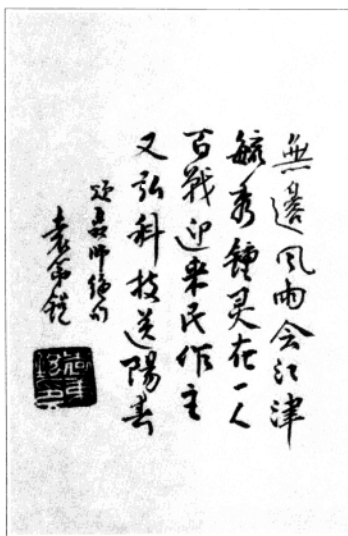 無邊風雨会江津
毓秀鍾灵在一人
百戰迎来民作主
又弘科技送陽春
聂帅绝句
袁第锐